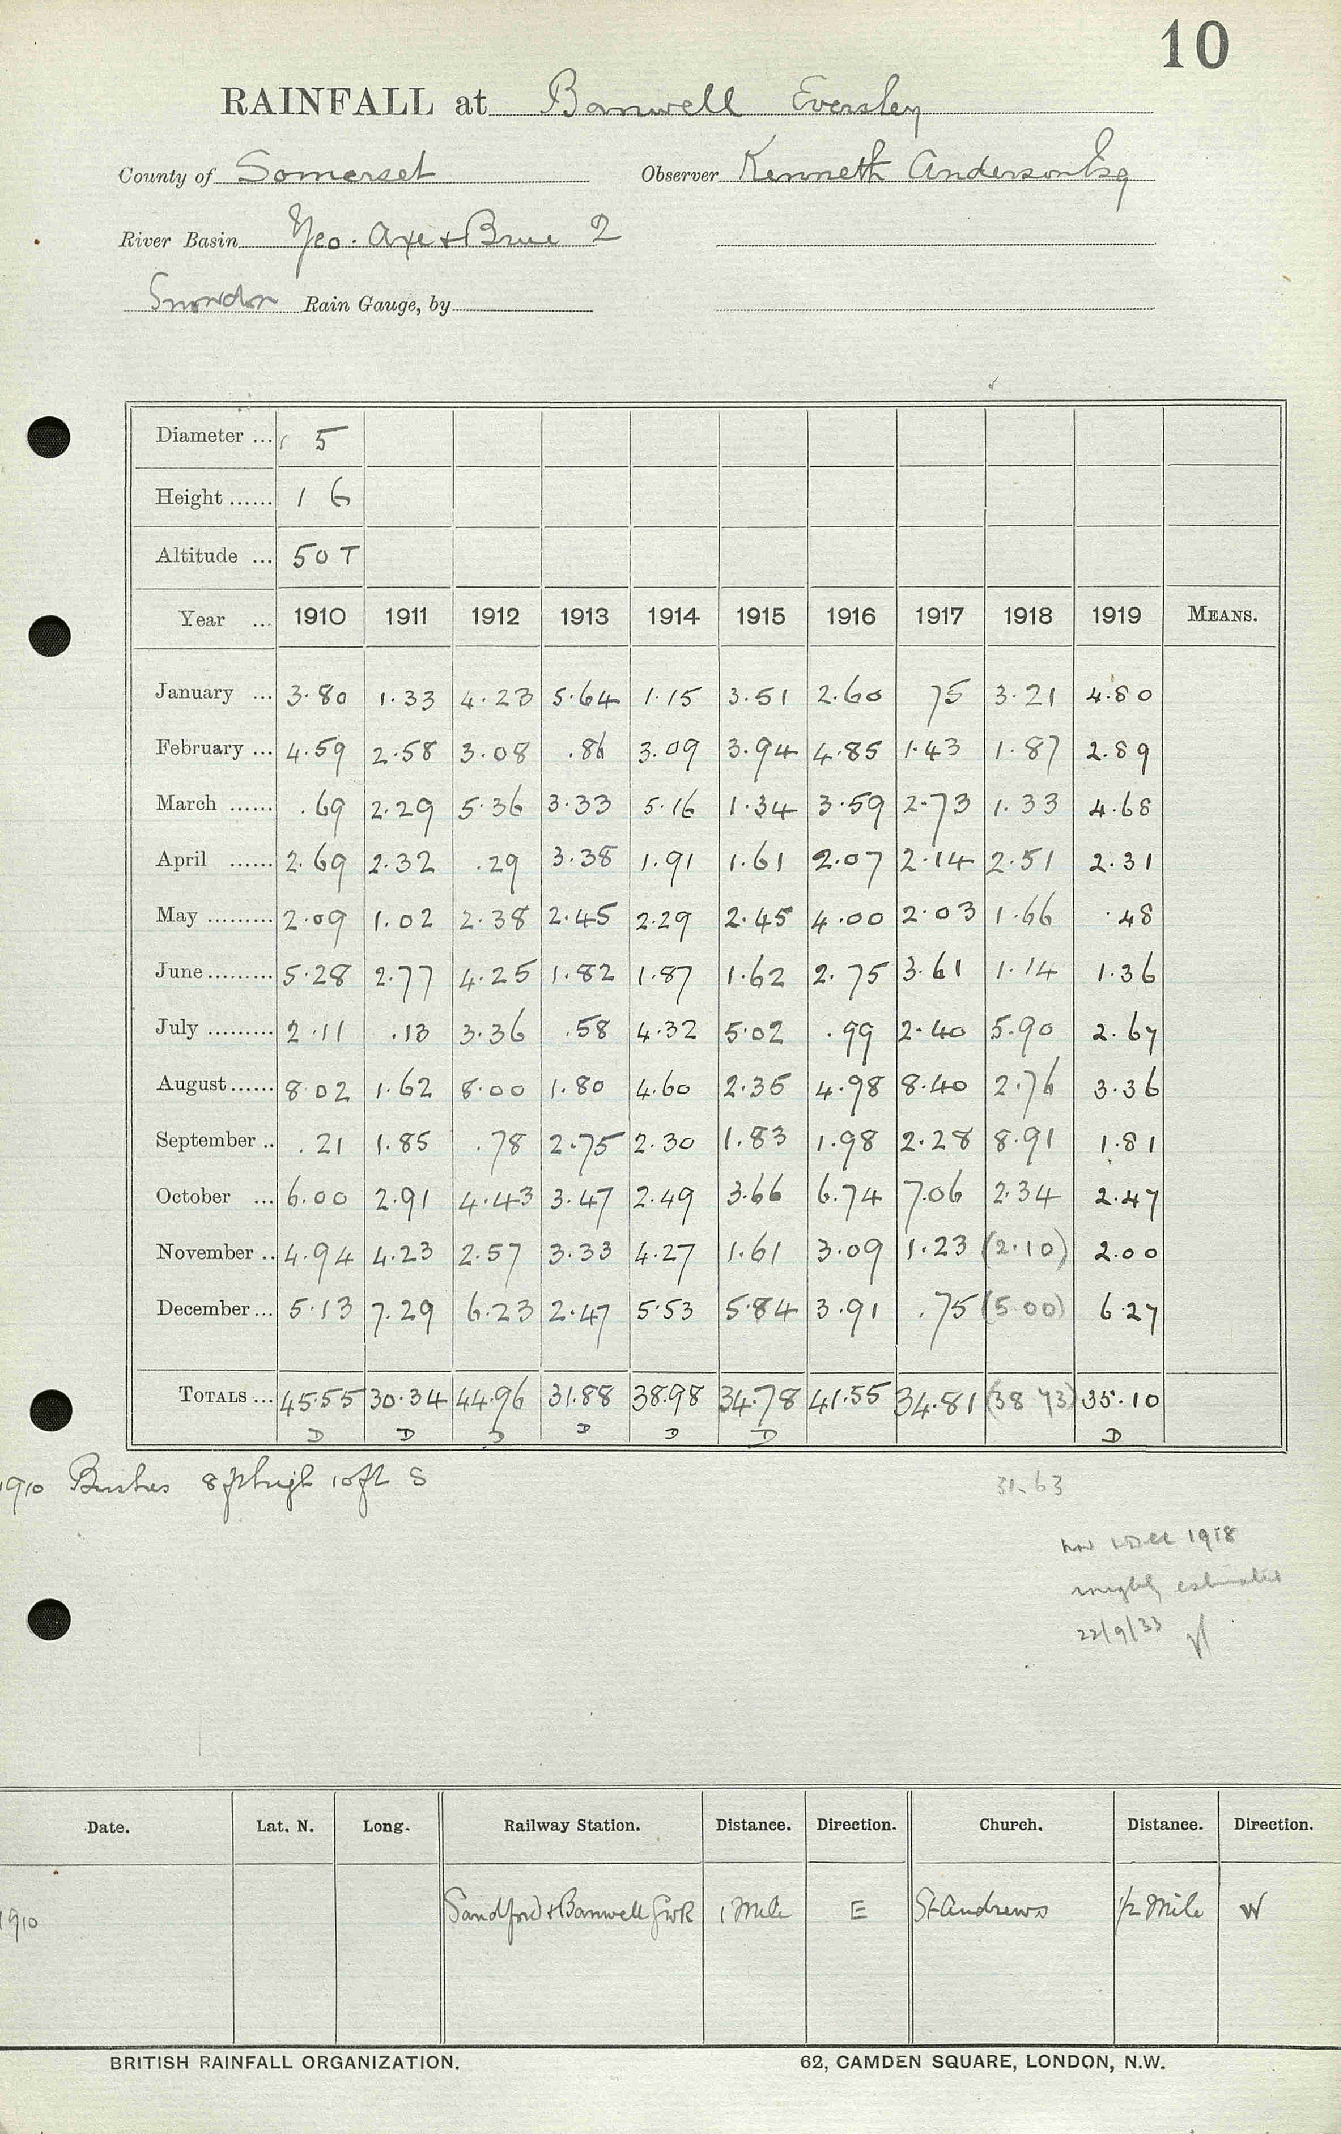 10
RAINFALL at Banwell Eversley
County of Somerset Observer Kenneth Anderson Esq
River Basin Yeo. Axe & Brue 2
Snowdon Rain Gauge, by
Diameter ... 5
Height ...... 1 6
Altitude ... 50 T
Year ... 1910 1911 1912 1913 1914 1915 1916 1917 1918 1919 MEANS.
January ... 3.80 1.33 4.23 5.64 1.15 3.51 2.60 75 3.21 4.80
February ... 4.59 2.58 3.08 .86 3.09 3.94 4.85 1.43 1.87 2.89
March ...... .69 2.29 5.36 3.33 5.16 1.34 3.59 2.73 1.33 4.68
April ...... 2.69 2.32 .29 3.38 1.91 1.61 2.07 2.14 2.51 2.31
May ......... 2.09 1.02 2.38 2.45 2.29 2.45 4.00 2.03 1.66 .48
June ......... 5.28 2.77 4.25 1.82 1.87 1.62 2.75 3.61 1.14 1.36
July ......... 2.11 .13 3.36 .58 4.32 5.02 .99 2.40 5.90 2.67
August ...... 8.02 1.62 8.00 1.80 4.60 2.35 4.98 8.40 2.76 3.36
September .. .21 1.85 .78 2.75 2.30 1.83 1.98 2.28 8.91 1.81
October ... 6.00 2.91 4.43 3.47 2.49 3.66 6.74 7.06 2.34 2.47
November .. 4.94 4.23 2.57 3.33 4.27 1.61 3.09 1.23 (2.10) 2.00
December ... 5.13 7.29 6.23 2.47 5.53 5.84 3.91 .75 (5.00) 6.27
TOTALS ... 45.55 30.34 44.96 31.88 38.98 34.78 41.55 34.81 (38 73) 35.10
D D D D D D D
1910 Bushes 8 ft high 10 ft S
31.63
Nov & Dec 1918
roughly estimated
22/9/33
Date. Lat. N. Long. Railway Station. Distance. Direction. Church. Distance. Direction.
1910 Sandford & Banwell GWR 1 Mile E St Andrews 1/2 Mile W
BRITISH RAINFALL ORGANIZATION. 62, CAMDEN SQUARE, LONDON, N.W.